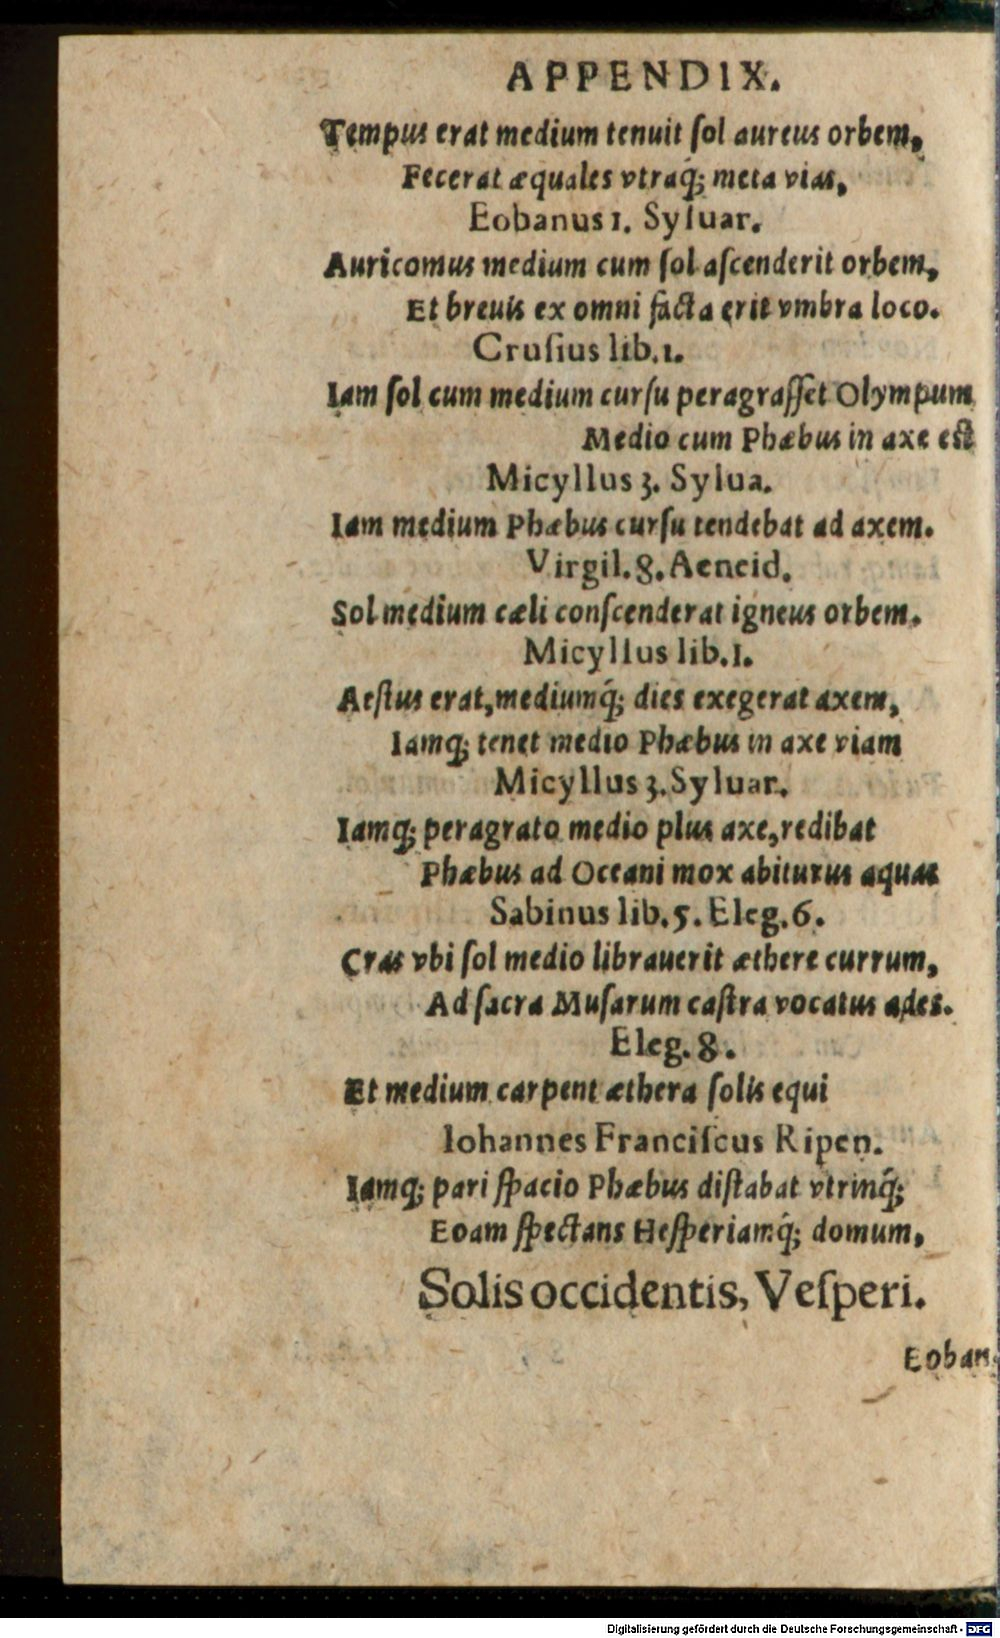 APPENDIX.
Tempus erat medium tenuit ſol aureus orbem,
Fecerat æquales vtraq́; meta vias,
Eobanus 1. Syluar.
Auricomus medium cum ſol aſcenderit orbem,
Et breuis ex omni facta erit vmbra loco.
Cruſius lib. 1.
Iam ſol cum medium curſu peragraſſet Olympum
Medio cum Phæbus in axe est
Micyllus 3. Sylua.
Iam medium Phæbus curſu tendebat ad axem.
Virgil. 8. Aeneid.
Sol medium cæli conſcenderat igneus orbem.
Micyllus lib. 1.
Aeſtus erat, mediumq́; dies exegerat axem,
Iamq; tenet medio Phæbus in axe viam
Micyllus 3. Syluar.
Iamq; peragrato medio plus axe, redibat
Phæbus ad Oceani mox abiturus aquas
Sabinus lib. 5. Eleg. 6.
Cras vbi ſol medio librauerit æthere currum,
Ad ſacra Muſarum caſtra vocatus ades.
Eleg. 8.
Et medium carpent æthera ſolis equi
Iohannes Franciſcus Ripen.
Iamq; pari ſpacio Phæbus diſtabat vtrinq́;
Eoam ſpectans Heſperiamq́; domum,
Solis occidentis, Veſperi.
Eoban.
Digitalisierung gefördert durch die Deutsche Forschungsgemeinschaft - DFG